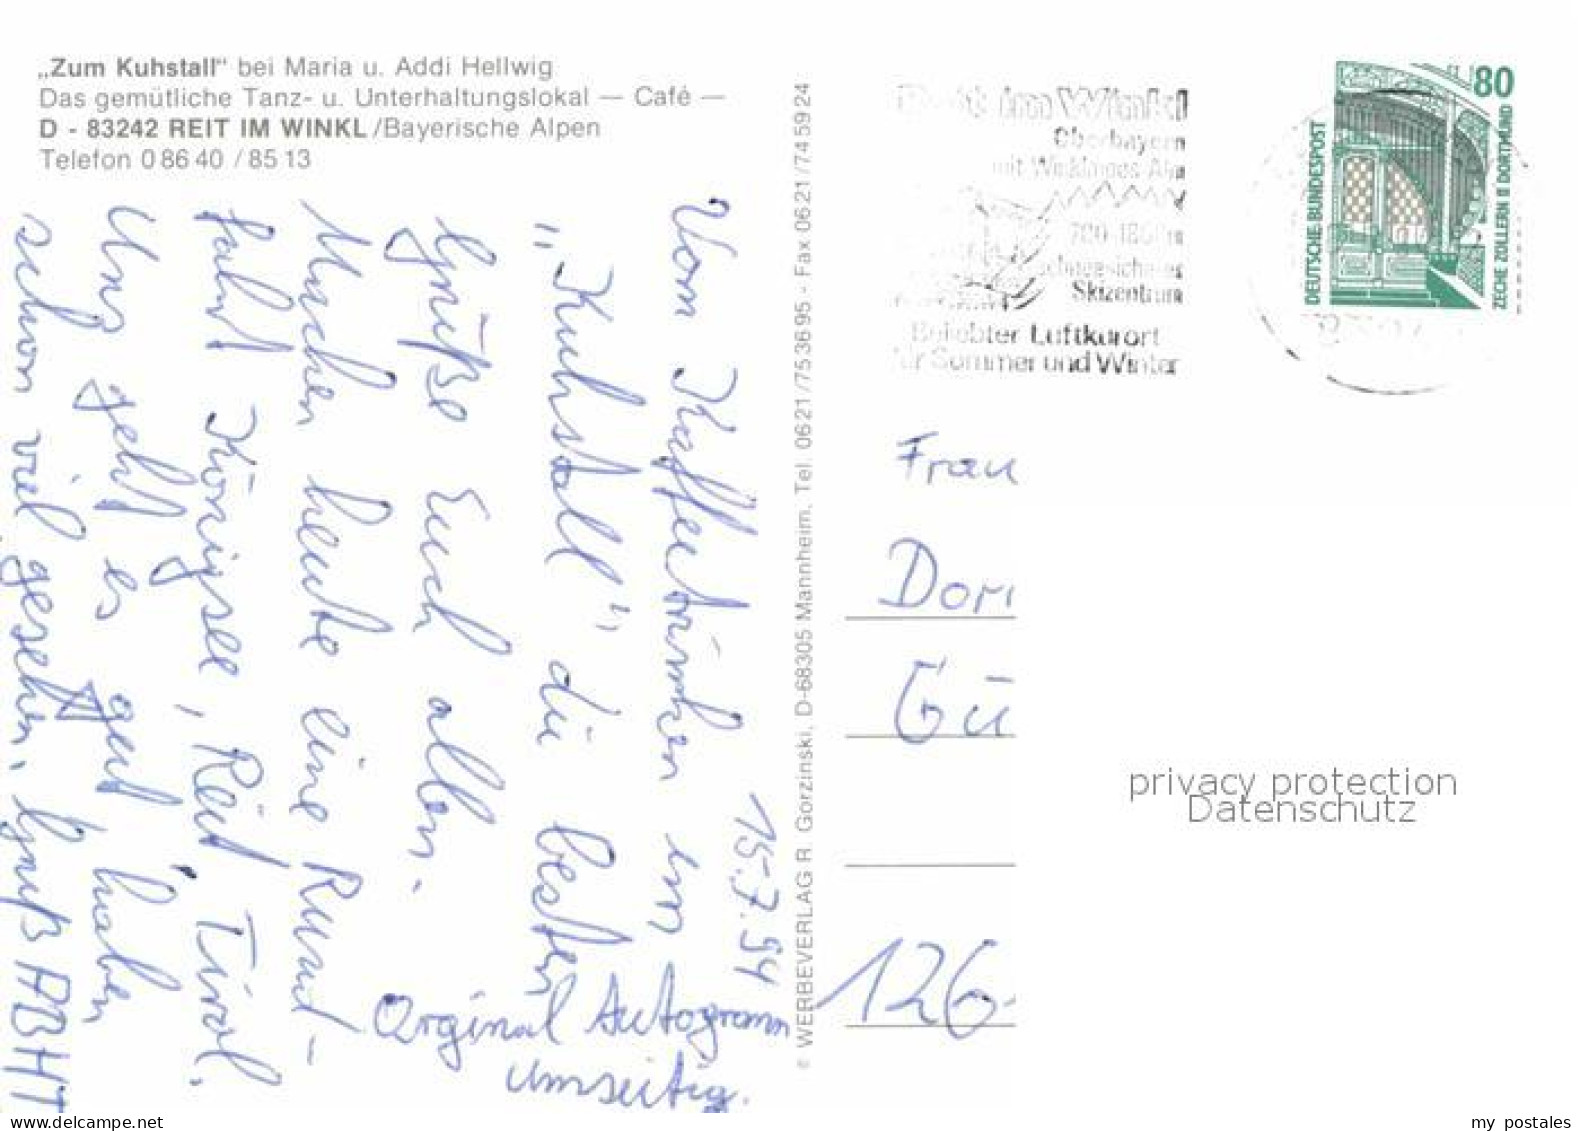 „Zum Kuhstall" bei Maria u. Addi Hellwig
Das gemütliche Tanz- u. Unterhaltungslokal — Café —
D - 83242 REIT IM WINKL/Bayerische Alpen
Telefon 0 86 40 / 85 13
15.7.94
Vom Kaffeetrinken im
„Kuhstall" die besten
Grüße Euch allen.
Machen heute eine Rund-
fahrt Königsee, Reit, Tirol.
Uns geht es gut haben
schon viel gesehen. Gruß
Orginal Autogramm
umseitig.
© WERBEVERLAG R. Gorzinski, D-68305 Mannheim, Tel. 06 21 / 75 36 95 - Fax 06 21 / 74 59 24
Reit im Winkl
Oberbayern
mit Winklmoos-Alm
Skizentrum
Beliebter Luftkurort
für Sommer und Winter
80
DEUTSCHE BUNDESPOST
ZECHE ZOLLERN II DORTMUND
Frau
Dor
Gü
126
privacy protection
Datenschutz
www.delcampe.net
my postales